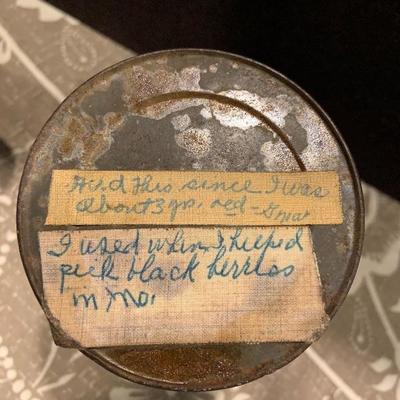 Had this since I was
about 3 yrs. old - Gma
I used when I helped
pick black berries
in Mo.